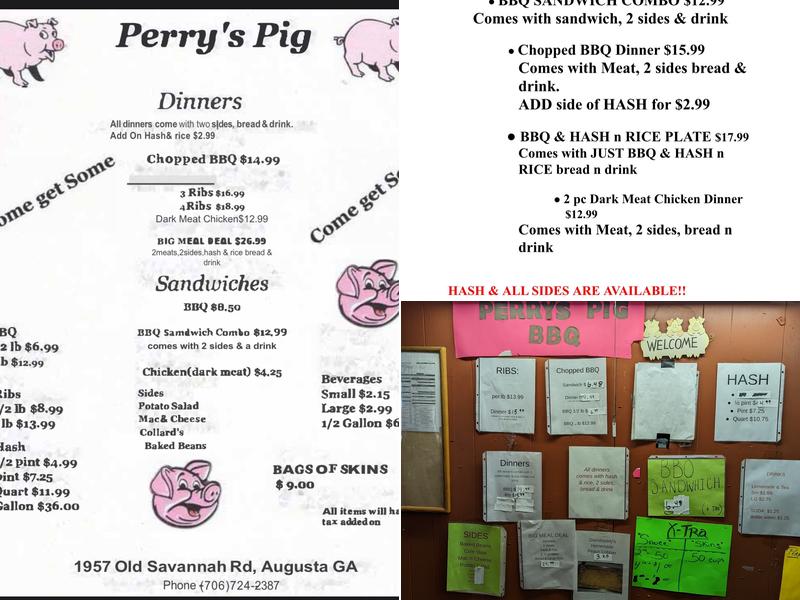 Perry's Pig
Dinners
All dinners come with two sides, bread & drink.
Add On Hash& rice $2.99
Chopped BBQ $14.99
ome get Some
Come get So
3 Ribs $16.99
4Ribs $18.99
Dark Meat Chicken$12.99
BIG MEAL DEAL $26.99
2meats,2sides,hash & rice bread &
drink
Sandwiches
BBQ $8.50
BBQ Sandwich Combo $12,99
comes with 2 sides & a drink
Chicken(dark meat) $4,25
Sides
Potato Salad
Mac& Cheese
Collard's
Baked Beans
BQ
2 lb $6.99
b $12.99
Ribs
/2 lb $8.99
lb $13.99
Hash
/2 pint $4.99
int $7.25
Quart $11.99
Gallon $36.00
Beverages
Small $2.15
Large $2.99
1/2 Gallon $6
BAGS OF SKINS
$ 9.00
All items will ha
tax added on
1957 Old Savannah Rd, Augusta GA
Phone (706)724-2387
• BBQ SANDWICH COMBO $12.99
Comes with sandwich, 2 sides & drink
• Chopped BBQ Dinner $15.99
Comes with Meat, 2 sides bread &
drink.
ADD side of HASH for $2.99
• BBQ & HASH n RICE PLATE $17.99
Comes with JUST BBQ & HASH n
RICE bread n drink
• 2 pc Dark Meat Chicken Dinner
$12.99
Comes with Meat, 2 sides, bread n
drink
HASH & ALL SIDES ARE AVAILABLE!!
PERRYS PIG
BBQ
WELCOME
RIBS:
per lb $13.99
Dinner
Chopped BBQ
Sandwich
Dinner
BBQ 1/2 lb
BBQ lb $12.99
HASH
½ pint
Pint $7.25
Quart $10.75
Dinners
All dinners
comes with hash
& rice, 2 sides,
bread & drink
BBQ
SANDWICH
DRINKS
Lemonade & Tea
SIDES
Baked Beans
BIG MEAL DEAL
X-Tra
"Sauce"
"Skins"
.50 cup